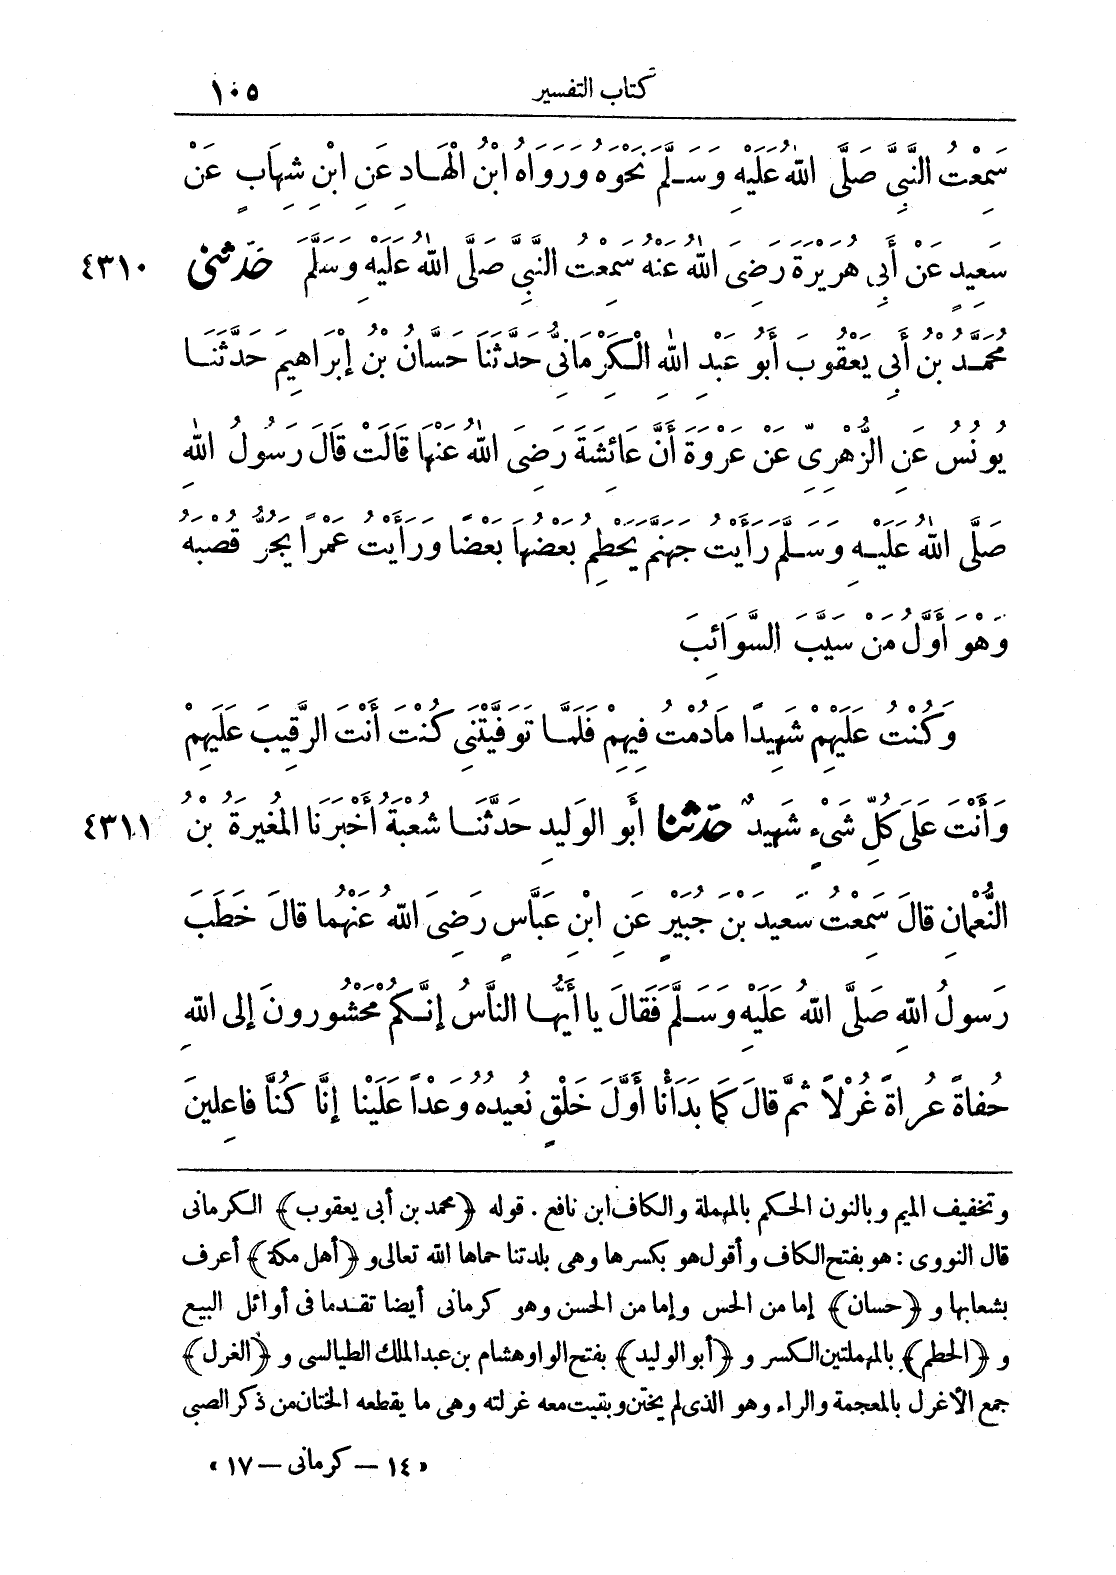 كتاب التفسير ١٠٥
سَمِعْتُ النَّبِىَّ صَلَّى اللهُ عَلَيْهِ وَسَلَّمَ نَحْوَهُ وَرَوَاهُ ابْنُ الْهَادِ عَنِ ابْنِ شِهَابٍ عَنْ
سَعِيدٍ عَنْ أَبِى هُرَيْرَةَ رَضِىَ اللهُ عَنْهُ سَمِعْتُ النَّبِىَّ صَلَّى اللهُ عَلَيْهِ وَسَلَّمَ حَدَّثَنِى ٤٣١٠
مُحَمَّدُ بْنُ أَبِى يَعْقُوبَ أَبُو عَبْدِ اللهِ الْكَرْمَانِىُّ حَدَّثَنَا حَسَّانُ بْنُ إِبْرَاهِيمَ حَدَّثَنَا
يُونُسُ عَنِ الزُّهْرِىِّ عَنْ عُرْوَةَ أَنَّ عَائِشَةَ رَضِىَ اللهُ عَنْهَا قَالَتْ قَالَ رَسُولُ اللهِ
صَلَّى اللهُ عَلَيْهِ وَسَلَّمَ رَأَيْتُ جَهَنَّمَ يَحْطِمُ بَعْضُهَا بَعْضًا وَرَأَيْتُ عَمْرًا يَجُرُّ قُصْبَهُ
وَهْوَ أَوَّلُ مَنْ سَيَّبَ السَّوَائِبَ
وَكُنْتُ عَلَيْهِمْ شَهِيدًا مَادُمْتُ فِيهِمْ فَلَمَّا تَوَفَّيْتَنِى كُنْتَ أَنْتَ الرَّقِيبَ عَلَيْهِمْ
وَأَنْتَ عَلَى كُلِّ شَىْءٍ شَهِيدٌ حَدَّثَنَا أَبُو الْوَلِيدِ حَدَّثَنَا شُعْبَةُ أَخْبَرَنَا الْمُغِيرَةُ بْنُ ٤٣١١
النُّعْمَانِ قَالَ سَمِعْتُ سَعِيدَ بْنَ جُبَيْرٍ عَنِ ابْنِ عَبَّاسٍ رَضِىَ اللهُ عَنْهُمَا قَالَ خَطَبَ
رَسُولُ اللهِ صَلَّى اللهُ عَلَيْهِ وَسَلَّمَ فَقَالَ يَا أَيُّهَا النَّاسُ إِنَّكُمْ مَحْشُورُونَ إِلَى اللهِ
حُفَاةً عُرَاةً غُرْلاً ثُمَّ قَالَ كَمَا بَدَأْنَا أَوَّلَ خَلْقٍ نُعِيدُهُ وَعْداً عَلَيْنَا إِنَّا كُنَّا فَاعِلِينَ
وتخفيف الميم وبالنون الحكم بالمهملة والكاف ابن نافع . قوله ﴿محمد بن أبى يعقوب﴾ الكرمانى
قال النووى : هو بفتح الكاف وأقول هو بكسرها وهى بلدتنا حماها الله تعالى و ﴿أهل مكة﴾ أعرف
بشعابها و ﴿حسان﴾ إما من الحس وإما من الحسن وهو كرمانى أيضا تقدما فى أوائل البيع
و ﴿الحطم﴾ بالمهملتين الكسر و ﴿أبو الوليد﴾ بفتح الواو هشام بن عبد الملك الطيالسى و ﴿الغرل﴾
جمع الأغرل بالمعجمة والراء وهو الذى لم يختن وبقيت معه غرلته وهى ما يقطعه الختان من ذكر الصبى
« ١٤ - كرمانى - ١٧ »